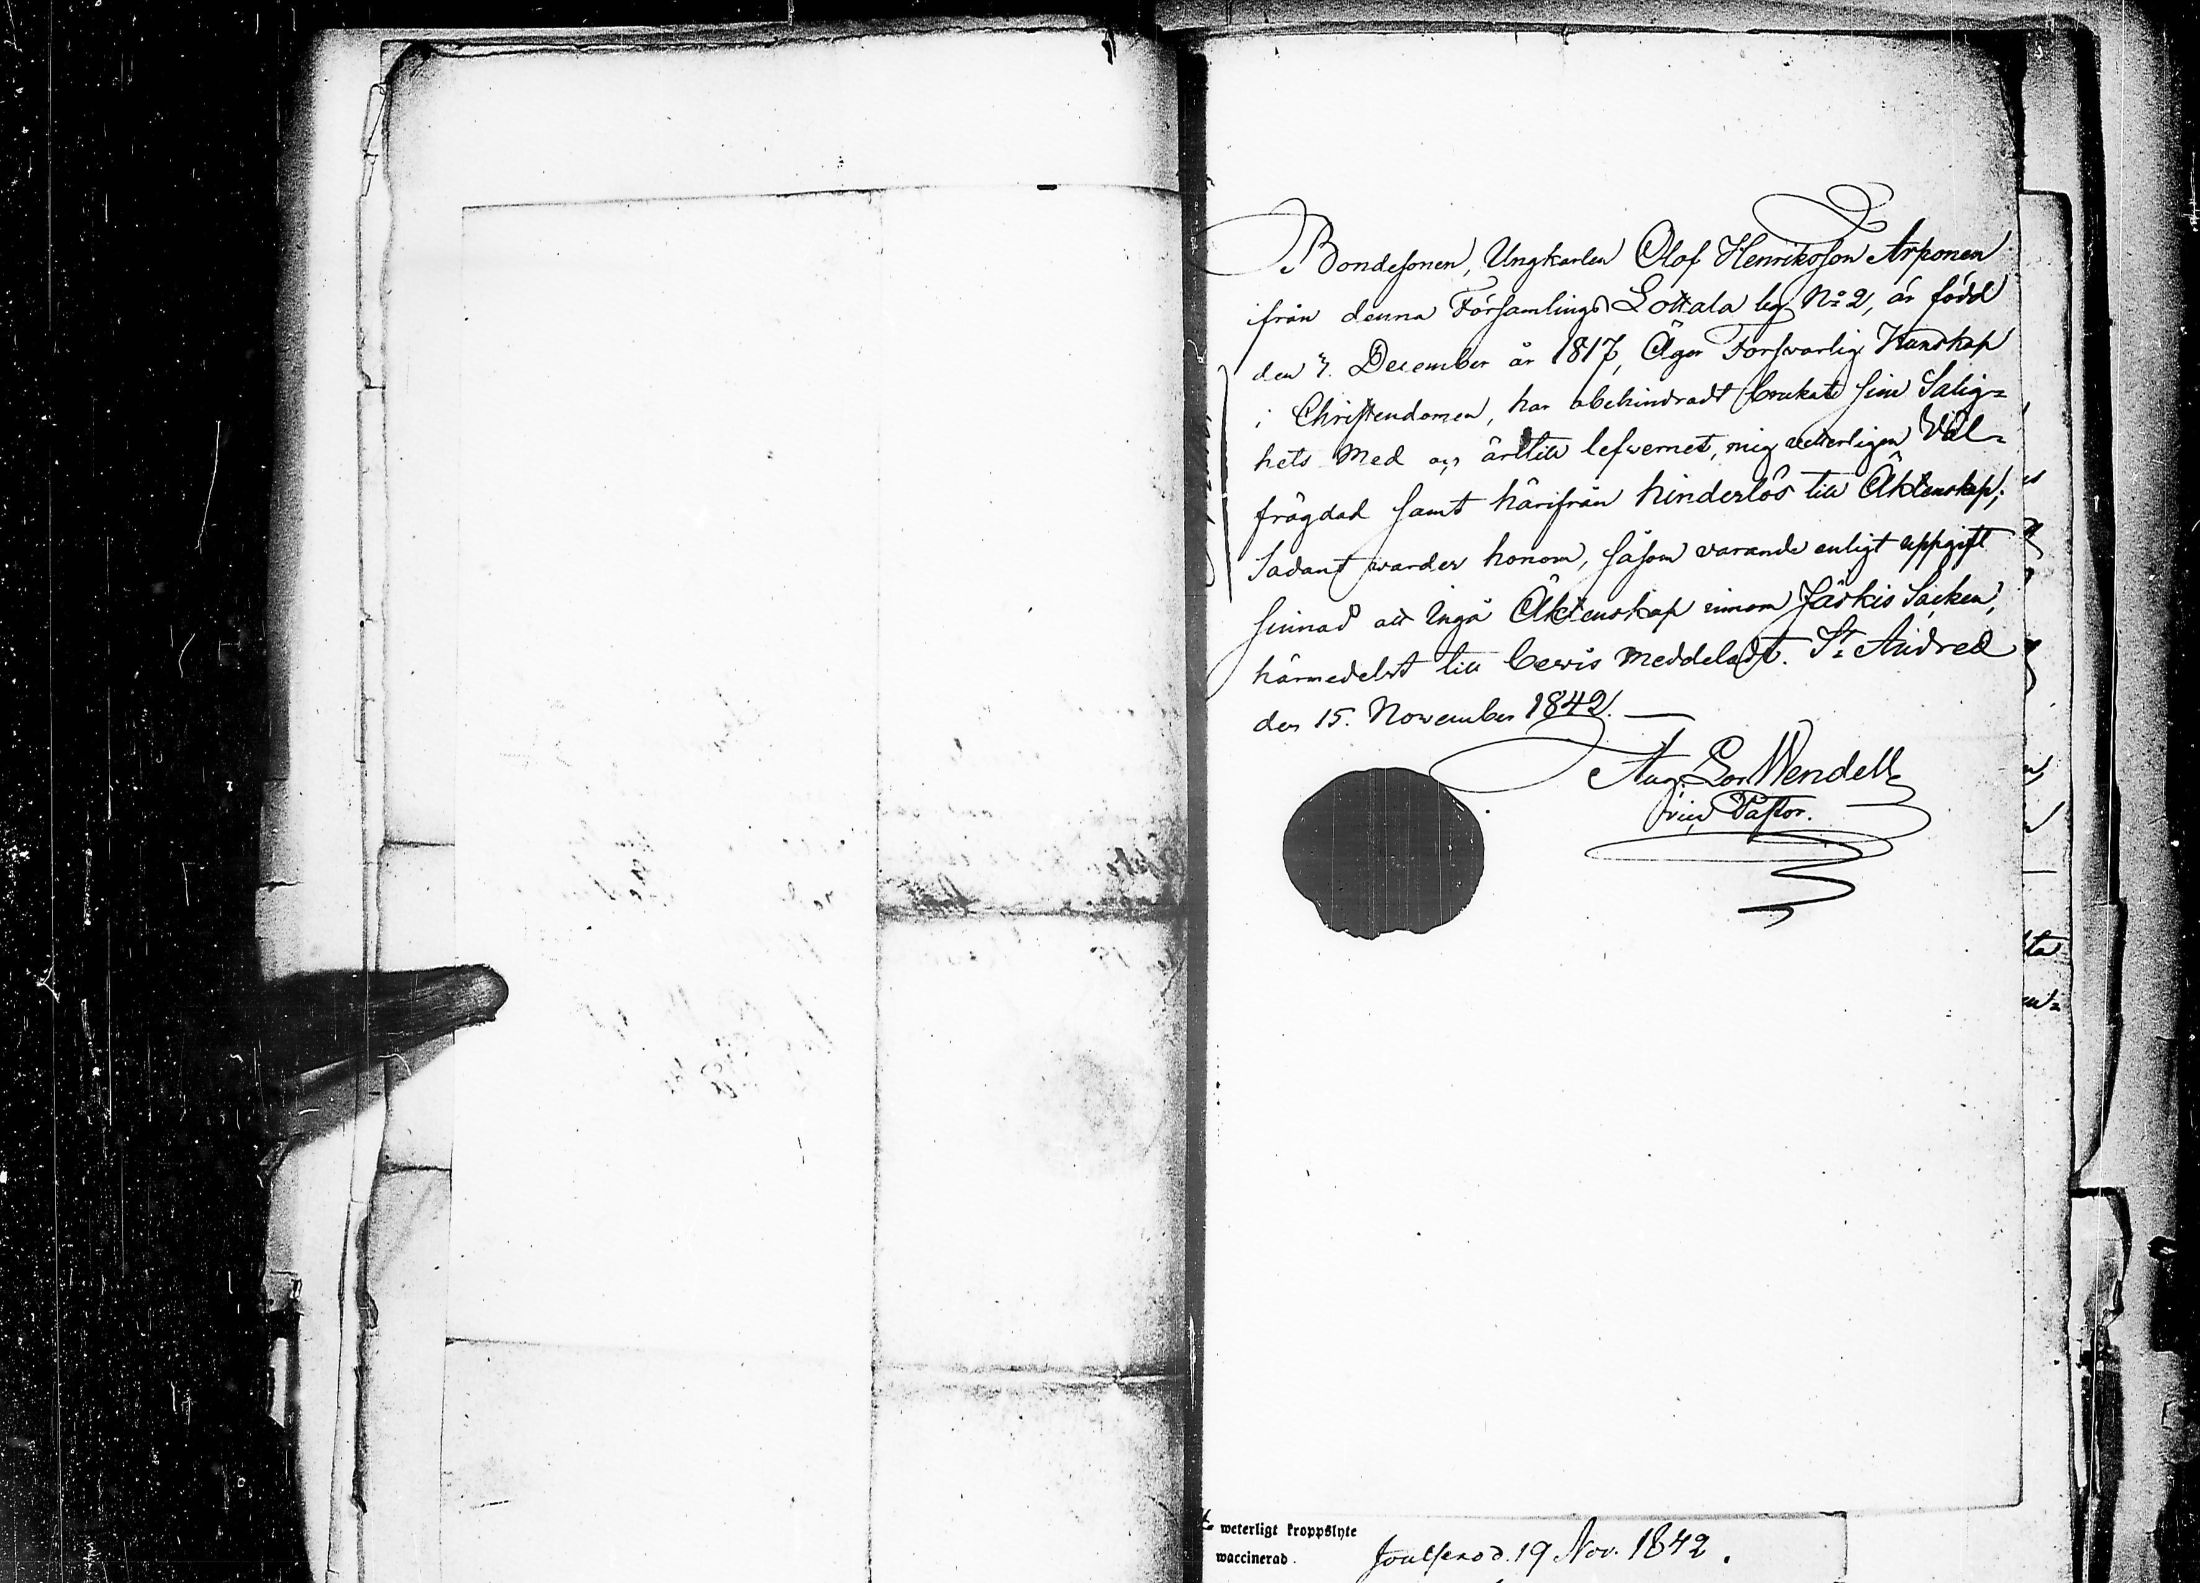 Bondesonen, Ungkarlen Olof Henriksson Arponen
ifrån denna Församlings Lottala by No 2, är född
den 7. December år 1817, Äger Forswarlig Kunskap
i Christendomen, har obehindradt brukat sine Salig=
hets Med och ärtill lefwernet, mig vetterligen Väl=
frägdad samt härifrån hinderlös till Äktenskap;
Sådant warder honom, såsom varande enligt uppgift
sinnad att Ingå Äktenskap innom Jäskis Socken,
härmedelst till bewis meddeladt. St Andreæ
den 15. November 1842. —
Aug. Lor Wendell
vice Pastor.
weterligt kroppslyte
waccinerad.
Joutseno d. 19 Nov. 1842.